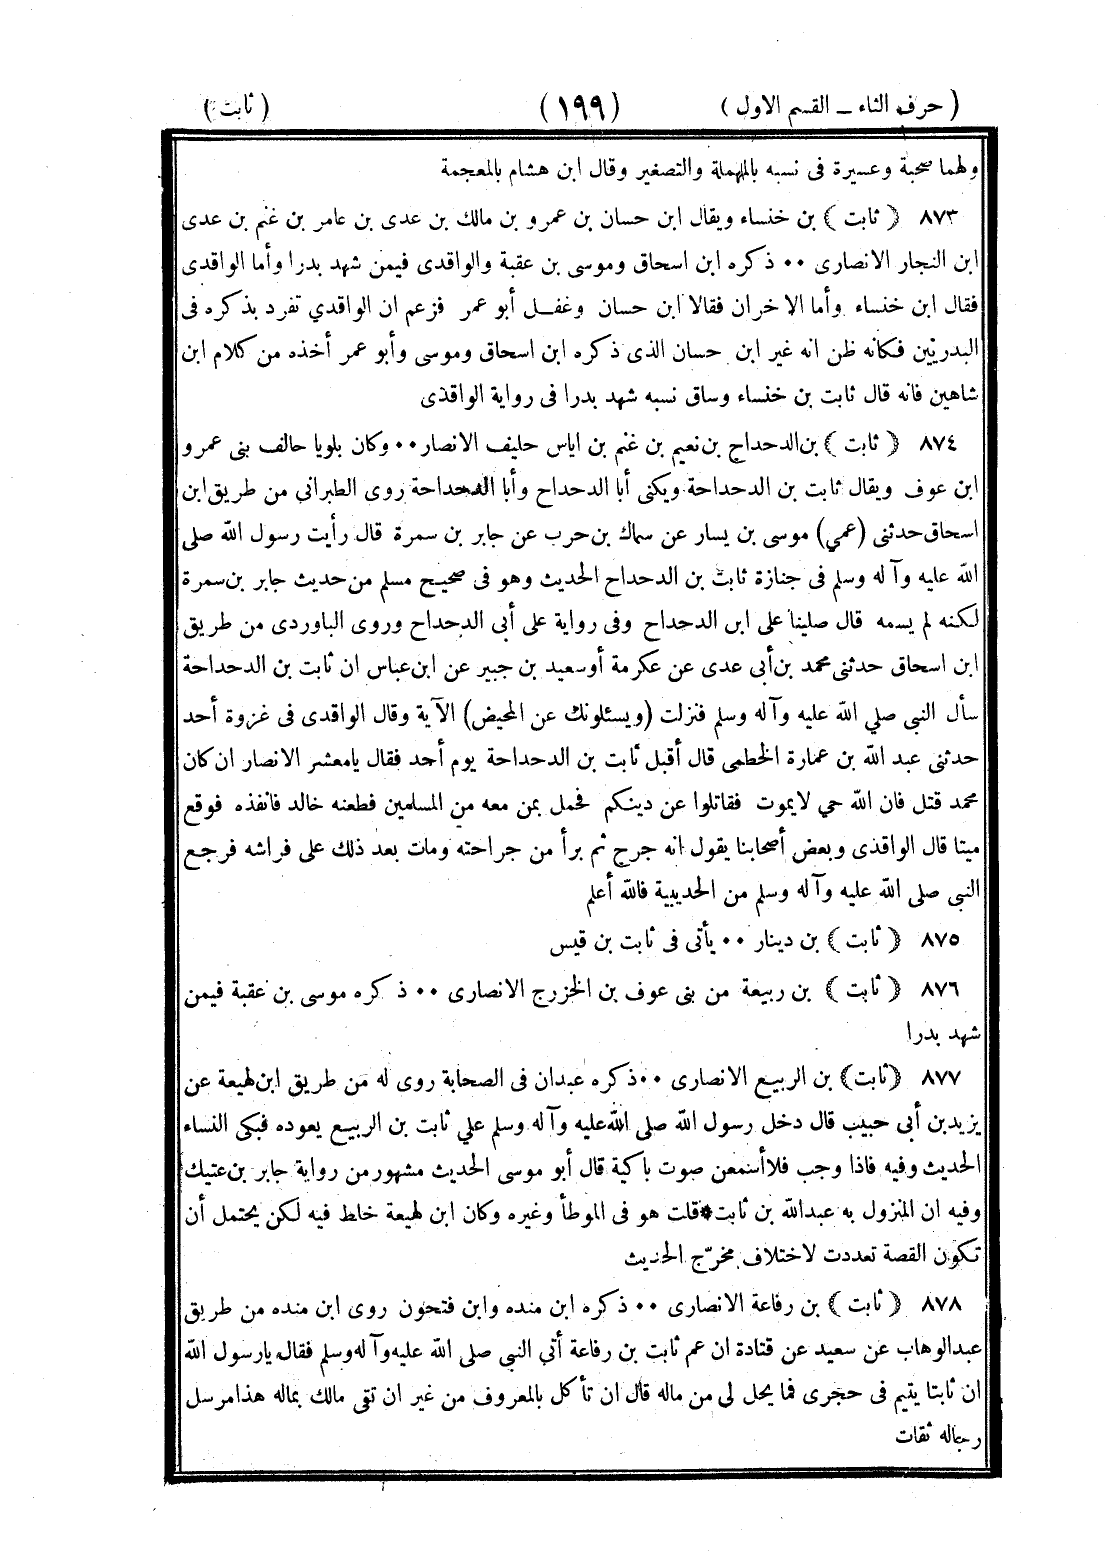 ( حرف الثاء ـ القسم الاول )
( ١٩٩ )
( ثابت )
ولهما صحبة وعسيرة فى نسبه بالمهملة والتصغير وقال ابن هشام بالمعجمة
٨٧٣ ( ثابت ) بن خنساء ويقال ابن حسان بن عمرو بن مالك بن عدى بن عامر بن غنم بن عدى
ابن النجار الانصارى ٠٠ ذكره ابن اسحاق وموسى بن عقبة والواقدى فيمن شهد بدرا وأما الواقدى
فقال ابن خنساء وأما الاخران فقالا ابن حسان وغفل أبو عمر فزعم ان الواقدي تفرد بذكره فى
البدريّين فكانه ظن انه غير ابن حسان الذى ذكره ابن اسحاق وموسى وأبو عمر أخذه من كلام ابن
شاهين فانه قال ثابت بن خنساء وساق نسبه شهد بدرا فى رواية الواقدى
٨٧٤ ( ثابت ) بن الدحداح بن نعيم بن غنم بن اياس حليف الانصار ٠٠ وكان بلويا حالف بنى عمرو
ابن عوف ويقال ثابت بن الدحداحة ويكنى أبا الدحداح وأبا الدحداحة روى الطبرانى من طريق ابن
اسحاق حدثنى (عمي) موسى بن يسار عن سماك بن حرب عن جابر بن سمرة قال رأيت رسول الله صلى
الله عليه وآله وسلم فى جنازة ثابت بن الدحداح الحديث وهو فى صحيح مسلم من حديث جابر بن سمرة
لكنه لم يسمه قال صلينا على ابن الدحداح وفى رواية على أبى الدحداح وروى الباوردى من طريق
ابن اسحاق حدثنى محمد بن أبى عدى عن عكرمة أو سعيد بن جبير عن ابن عباس ان ثابت بن الدحداحة
سأل النبي صلي الله عليه وآله وسلم فنزلت (ويسئلونك عن المحيض) الآية وقال الواقدى فى غزوة أحد
حدثنى عبد الله بن عمارة الخطمى قال أقبل ثابت بن الدحداحة يوم أحد فقال يامعشر الانصار ان كان
محمد قتل فان الله حي لايموت فقاتلوا عن دينكم فحمل بمن معه من المسلمين فطعنه خالد فانفذه فوقع
ميتا قال الواقدى وبعض أصحابنا يقول انه جرح ثم برأ من جراحته ومات بعد ذلك على فراشه فرجع
النبى صلى الله عليه وآله وسلم من الحديبية فالله أعلم
٨٧٥ ( ثابت ) بن دينار ٠٠ يأتى فى ثابت بن قيس
٨٧٦ ( ثابت ) بن ربيعة من بنى عوف بن الخزرج الانصارى ٠٠ ذكره موسى بن عقبة فيمن
شهد بدرا
٨٧٧ ( ثابت ) بن الربيع الانصارى ٠٠ ذكره عبدان فى الصحابة روى له من طريق ابن لهيعة عن
يزيد بن أبى حبيب قال دخل رسول الله صلى الله عليه وآله وسلم علي ثابت بن الربيع يعوده فبكى النساء
الحديث وفيه فاذا وجب فلا أسمعن صوت باكية قال أبو موسى الحديث مشهور من رواية جابر بن عتيك
وفيه ان المنزول به عبدالله بن ثابت * قلت هو فى الموطأ وغيره وكان ابن لهيعة خلط فيه لكن يحتمل أن
تكون القصة تعددت لاختلاف مخرّج الحديث
٨٧٨ ( ثابت ) بن رفاعة الانصارى ٠٠ ذكره ابن منده وابن فتحون روى ابن منده من طريق
عبدالوهاب عن سعيد عن قتادة ان عم ثابت بن رفاعة أتي النبى صلى الله عليه وآله وسلم فقال يارسول الله
ان ثابتا يتيم فى حجرى فما يحل لى من ماله قال ان تأكل بالمعروف من غير ان تقى مالك بماله هذا مرسل
رجاله ثقات